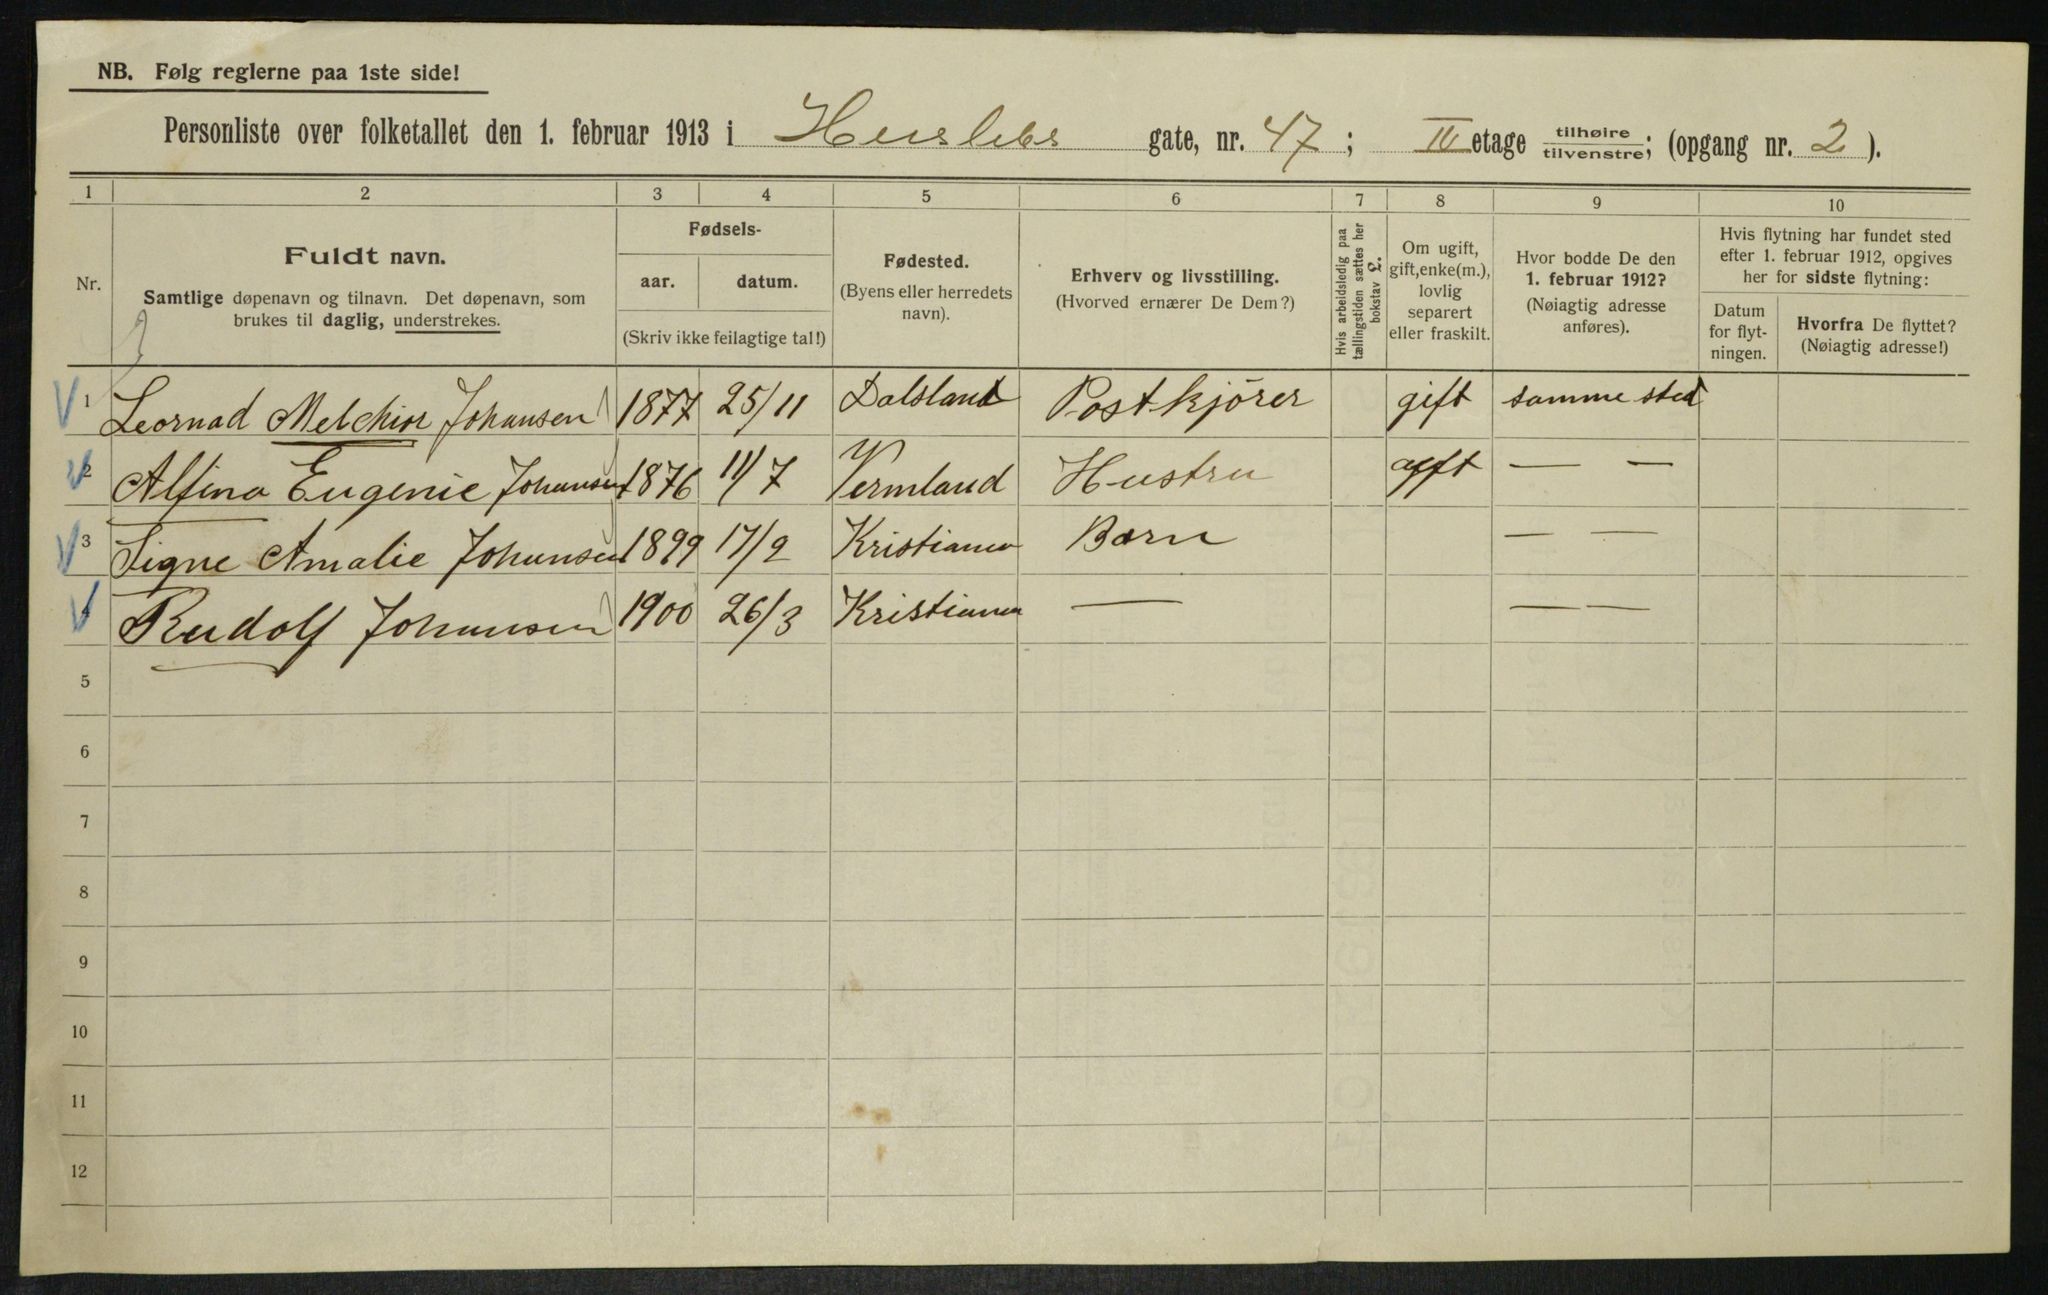 NB. Følg reglerne paa 1ste side!
Personliste over folketallet den 1. februar 1913 i Herslebs gate, nr. 47; IV etage tilhøire / tilvenstre; (opgang nr. 2).
1 2 3 4 5 6 7 8 9 10
Nr.
Fuldt navn.
Samtlige døpenavn og tilnavn. Det døpenavn, som
brukes til daglig, understrekes.
Fødsels-
aar. datum.
(Skriv ikke feilagtige tal!)
Fødested.
(Byens eller herredets
navn).
Erhverv og livsstilling.
(Hvorved ernærer De Dem?)
Hvis arbeidsledig paa
tællingstiden sættes her
bokstav l.
Om ugift,
gift, enke(m.),
lovlig
separert
eller fraskilt.
Hvor bodde De den
1. februar 1912?
(Nøiagtig adresse
anføres).
Hvis flytning har fundet sted
efter 1. februar 1912, opgives
her for sidste flytning:
Datum
for flyt-
ningen.
Hvorfra De flyttet?
(Nøiagtig adresse!)
1 Leornad Melchior Johansen 1877 25/11 Dalsland Postkjörer gift samme sted
2 Alfina Eugenie Johansen 1876 11/7 Vermland Hustru gift — —
3 Signe Amalie Johansen 1899 17/2 Kristiania Barn — —
4 Rudolf Johansen 1900 26/3 Kristiania — — —
5
6
7
8
9
10
11
12